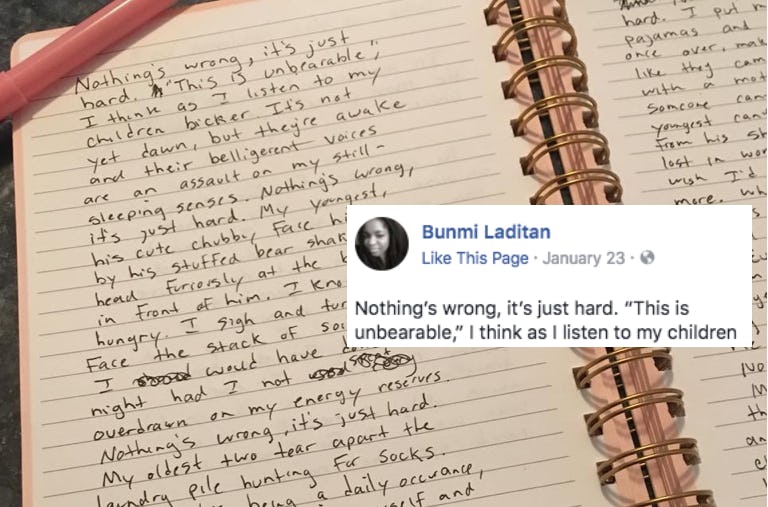 Nothing's wrong, it's just
hard. "This is unbearable",
I think as I listen to my
children bicker. It's not
yet dawn, but they're awake
and their belligerent voices
are an assault on my still-
sleeping senses. Nothing's wrong,
it's just hard. My youngest,
his cute chubby face hi
by his stuffed bear shak
head furiously at the b
in front of him. I kno
hungry. I sigh and tur
Face the stack of
I would have
night had I not
overdrawn on my energy reserves.
Nothing's wrong, it's just hard.
My oldest two tear apart the
laundry pile hunting for socks.
being a daily occurance,
self and
hard. I put m
pajamas and
once over, mak
like they cam
with a mot
someone can
youngest can
from his sh
lost in wor
wish I'd
more. wh
No
M
th
an
Bunmi Laditan
Like This Page · January 23 ·
Nothing's wrong, it's just hard. "This is
unbearable," I think as I listen to my children